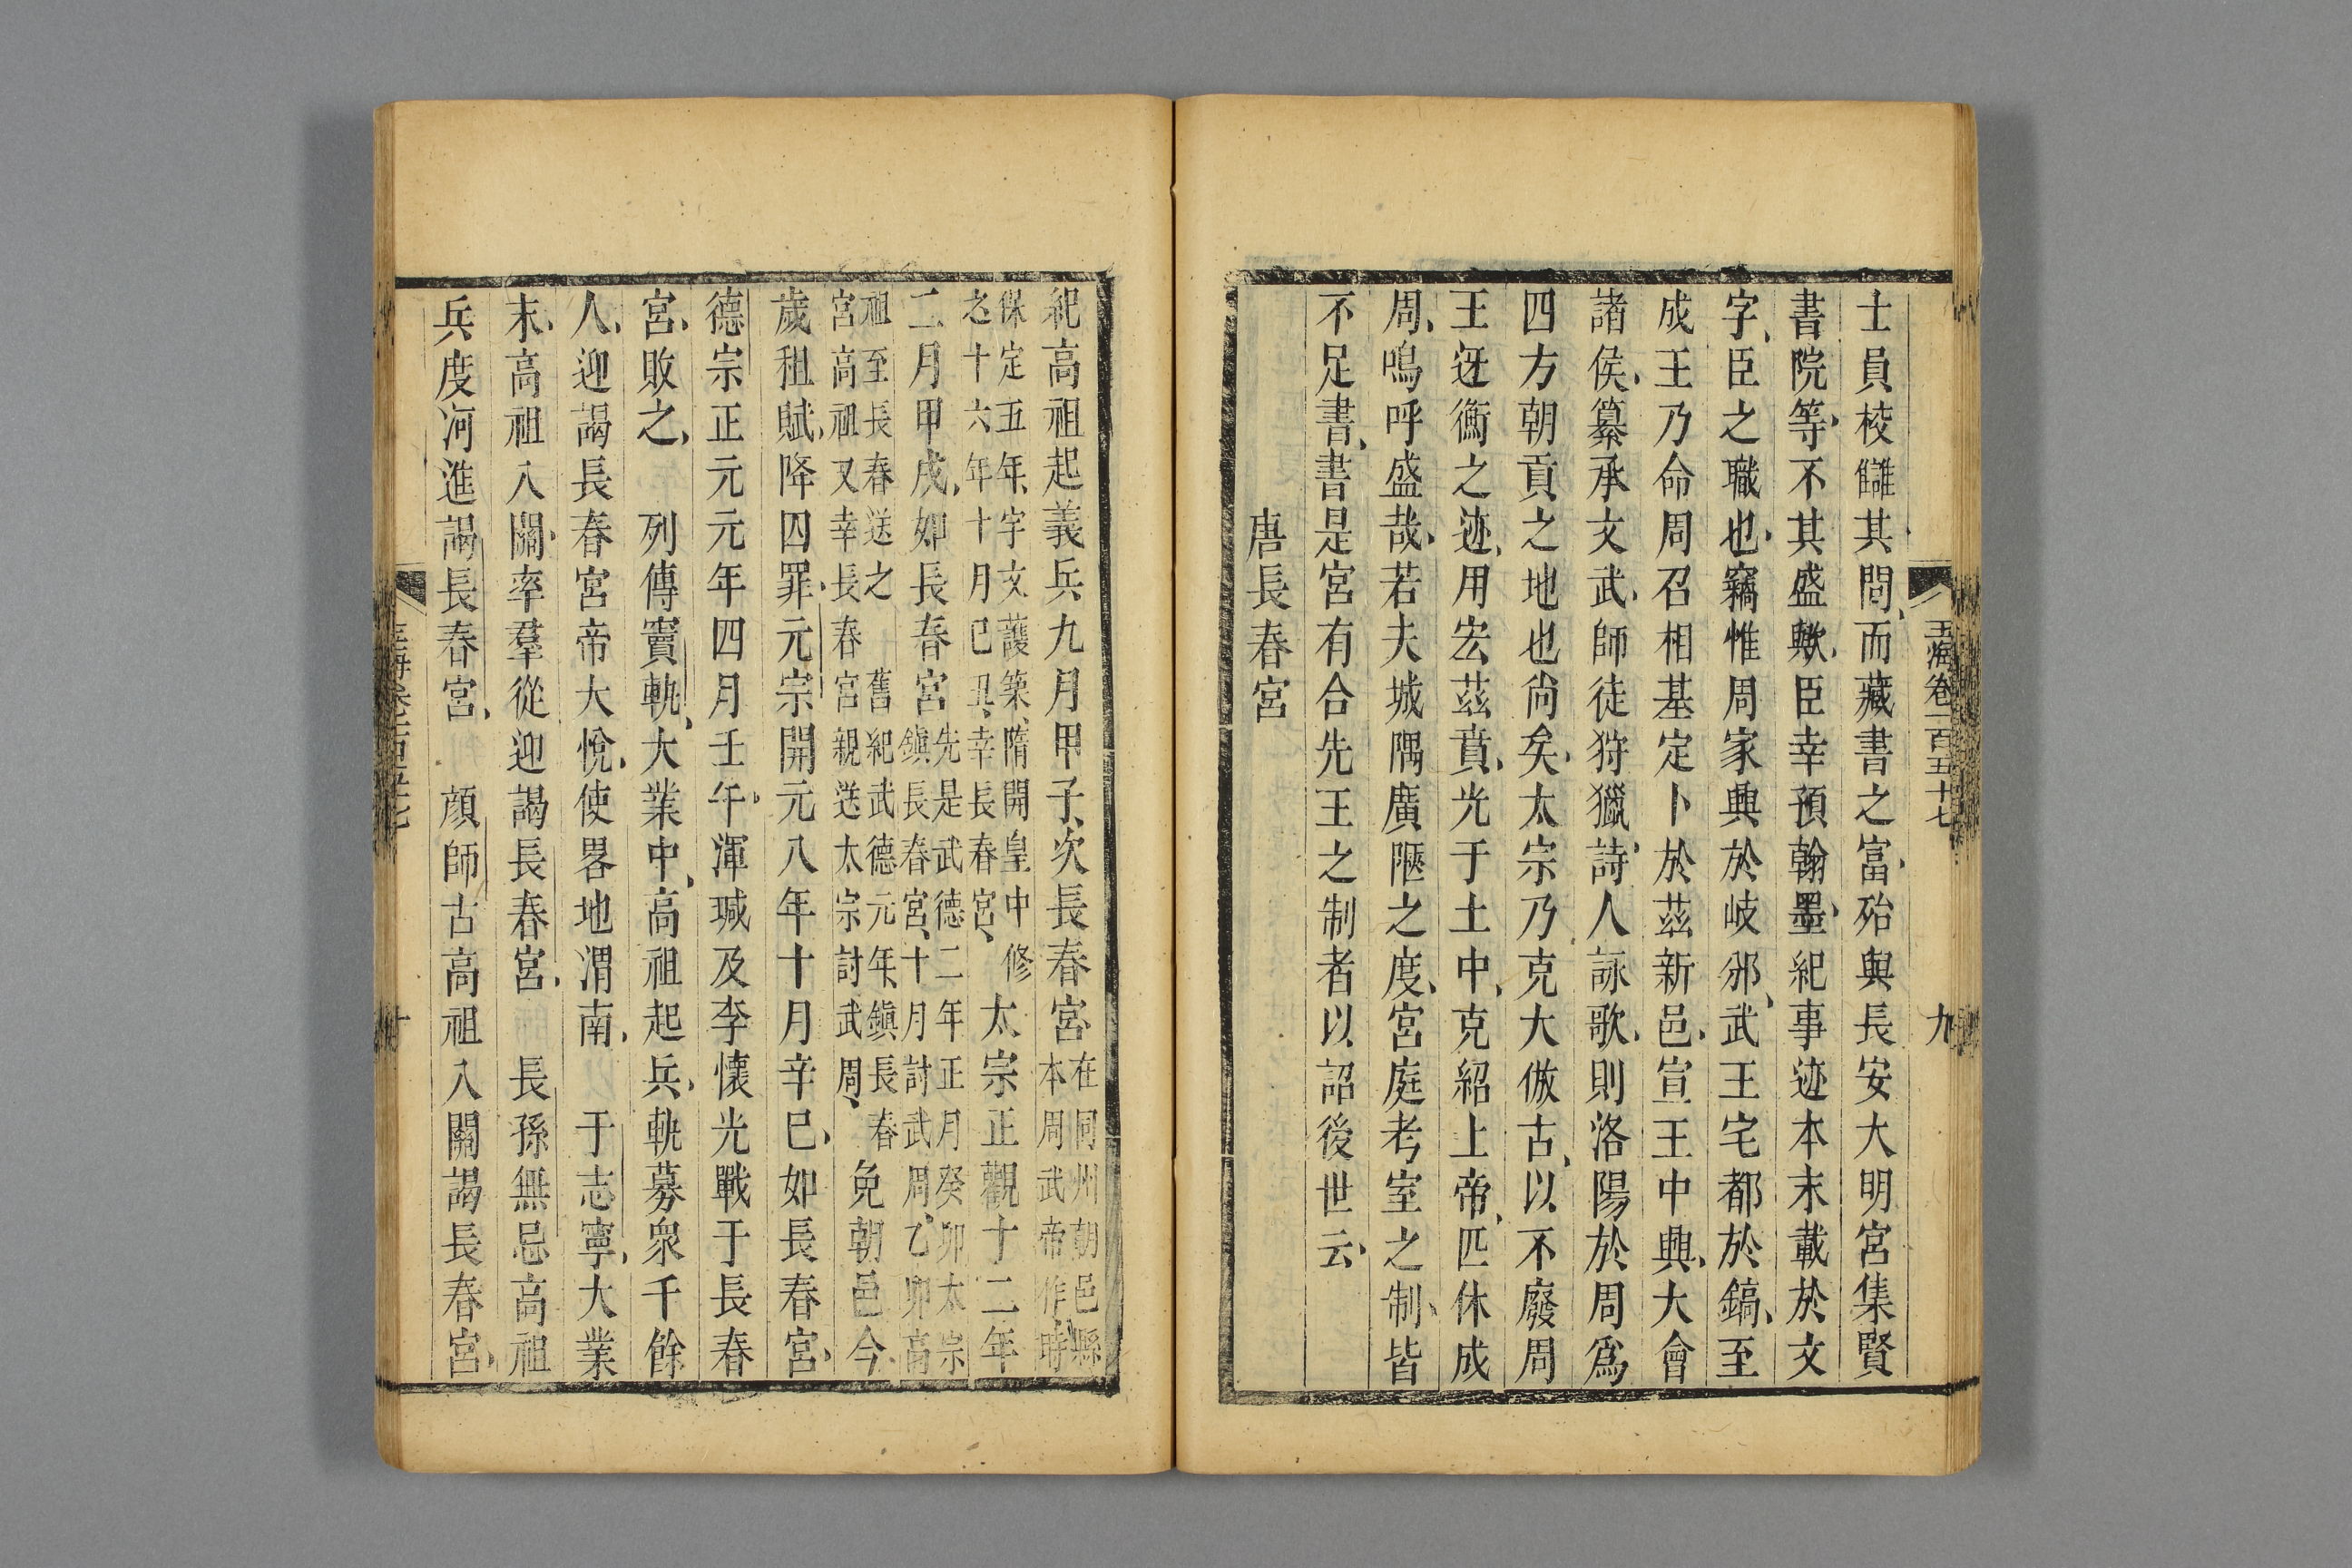 玉海卷一百五十七
九
士員校讎其間而藏書之富殆與長安大明宮集賢
書院等不其盛歟臣幸預翰墨紀事迹本末載於文
字臣之職也竊惟周家興於岐邠武王宅都於鎬至
成王乃命周召相基定卜於茲新邑宣王中興大會
諸侯纂承文武師徒狩獵詩人詠歌則洛陽於周爲
四方朝貢之地也尚矣太宗乃克大倣古以不廢周
王迓衡之迹用宏茲賁光于土中克紹上帝匹休成
周嗚呼盛哉若夫城隅廣陿之度宮庭考室之制皆
不足書書是宮有合先王之制者以詔後世云
唐長春宮
紀高祖起義兵九月甲子次長春宮在同州朝邑縣本周武帝作時
保定五年宇文護築隋開皇中修之十六年十月己丑幸長春宮太宗正觀十二年
二月甲戌如長春宮先是武德二年正月癸卯太宗鎭長春宮十月討武周乙卯高
祖至長春送之 舊紀武德元年鎭長春宮高祖又幸長春宮親送太宗討武周免朝邑今
歲租賦降囚罪元宗開元八年十月辛巳如長春宮
德宗正元元年四月壬午渾瑊及李懷光戰于長春
宮敗之 列傳竇軌大業中高祖起兵軌募衆千餘
人迎謁長春宮帝大悅使畧地渭南 于志寧大業
末高祖入關率羣從迎謁長春宮 長孫無忌高祖
兵度河進謁長春宮 顏師古高祖入關謁長春宮
十